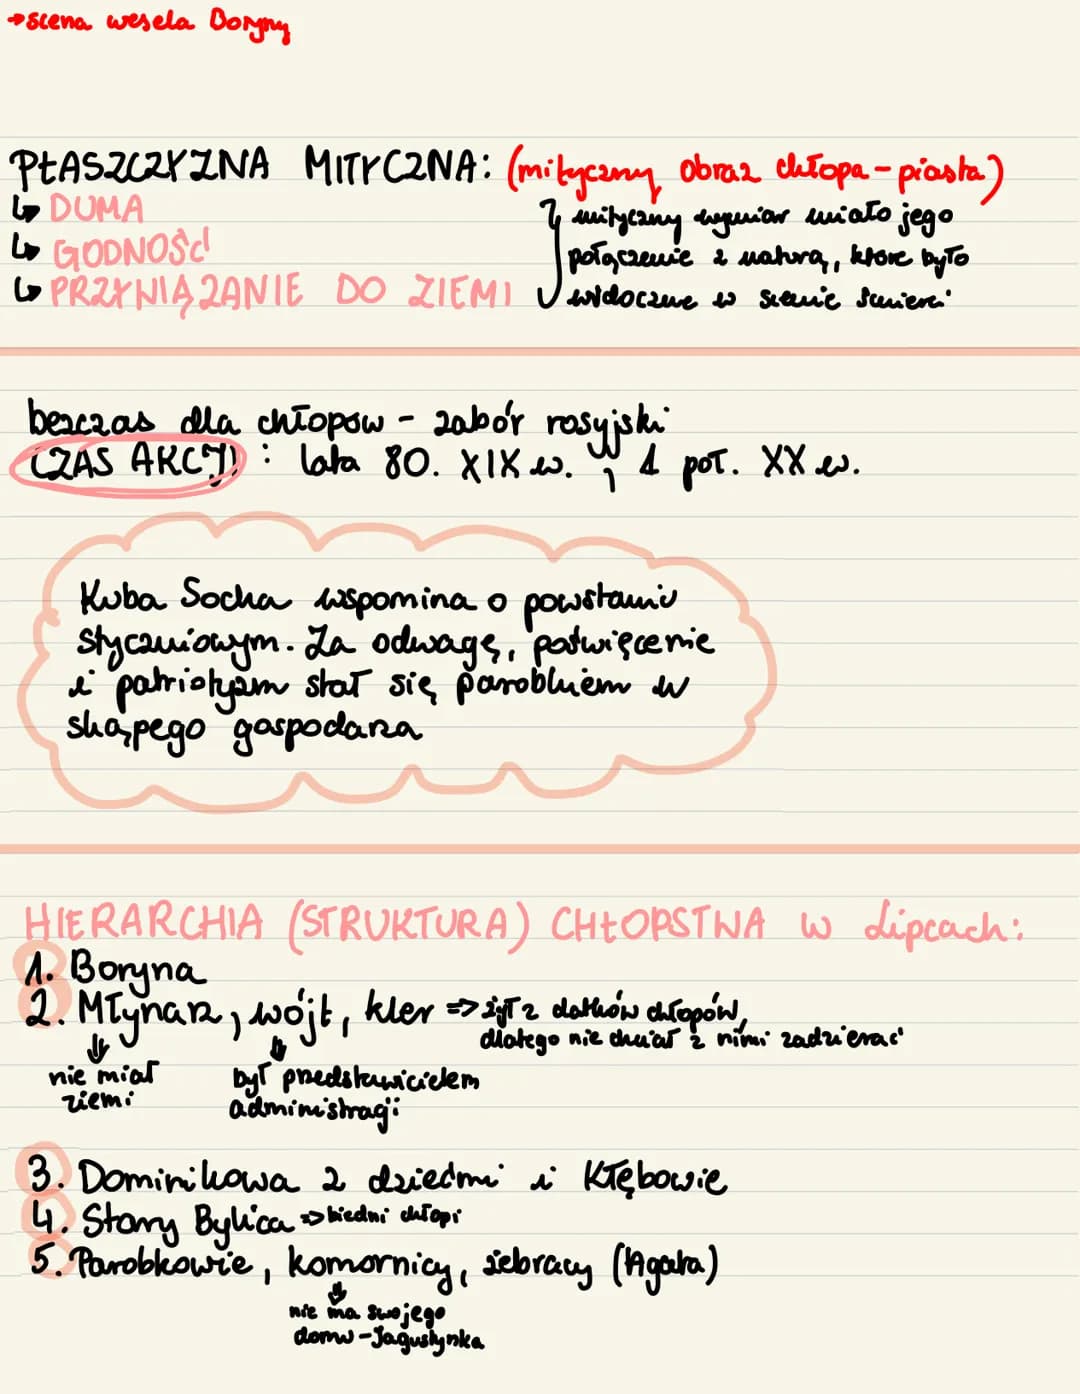 →scena wesela Boryny
PŁASZCZYZNA MITYCZNA: (mityczny obraz chłopa-piasta)
↳ DUMA
↳ GODNOŚĆ
↳ PRZYWIĄZANIE DO ZIEMI
mityczny wymiar miało jego
połączenie z naturą, które było
widoczne w scenie śmierci
bezczas dla chłopów - zabór rosyjski
CZAS AKCJI : lata 80. XIX w. , 1 poł. XX w.
Kuba Socha wspomina o powstaniu
styczniowym. Za odwagę, poświęcenie
i patriotyzm stał się parobkiem u
skąpego gospodarza
HIERARCHIA (STRUKTURA) CHŁOPSTWA w Lipcach:
1. Boryna
2. Młynarz, wójt, kler => żył z datków chłopów,
dlatego nie chciał z nimi zadzierać
nie miał
ziemi
był przedstawicielem
administracji
3. Dominikowa z dziećmi i Kłębowie
4. Stary Bylica => biedni chłopi
5. Parobkowie, komornicy, żebracy (Agata)
nie ma swojego
domu - Jagustynka